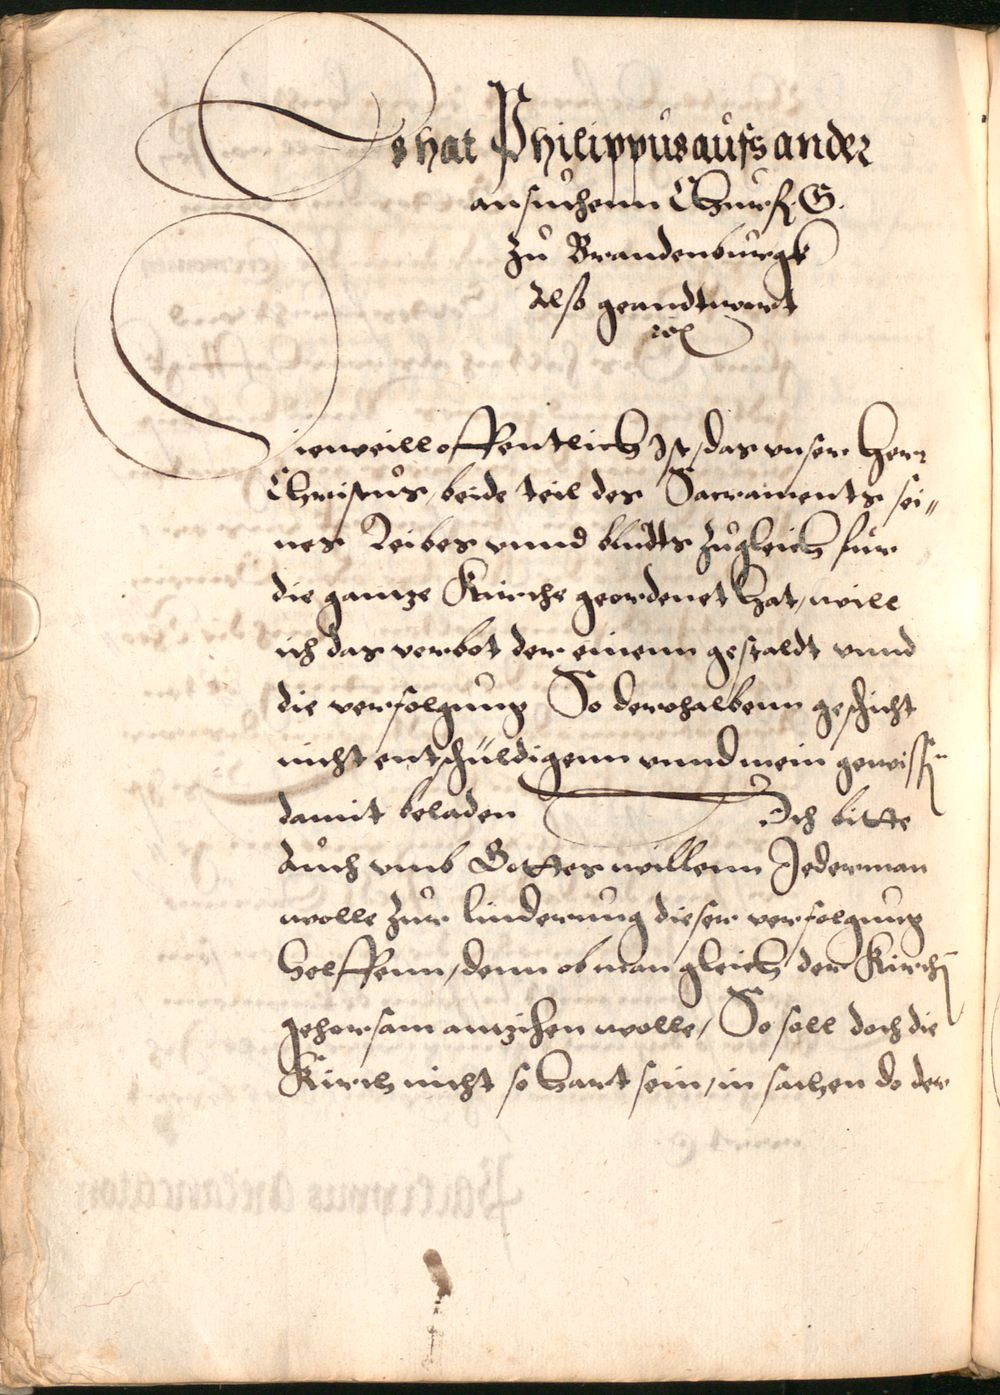 Es hat Philippus aufs ander
ansuchenn Churf. G.
zu Brandenburgk
Also geandtwort
Dieweill offentlich Ist, das vnser Herr
Christus, beide teil des Sacraments sei„
nes Leibes vnnd bludts zugleich fur
die gantze Kirche geordenet hat, will
ich das verbot der einenn gestaldt vnnd
die verfolgung So derohalbenn geschicht
nicht entschuldigenn vnnd mein gewissn
damit beladen Ich bitte
Auch vmb Gottes willenn Jederman
wolle zur linderung dieser verfolgung
helffenn, denn ob man gleich der Kirchn
gehorsam antzihen wolle, So soll doch die
Kirch nicht so hart sein, in sachen do der